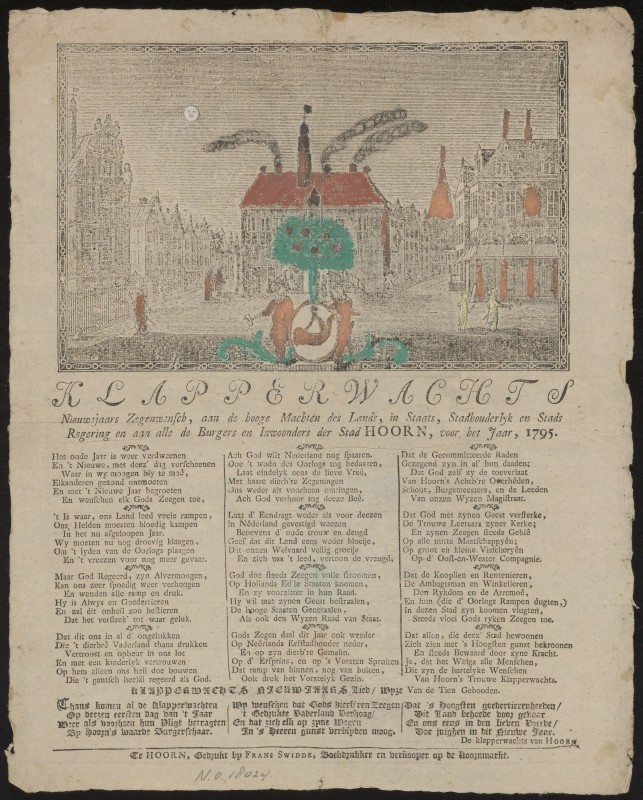 KLAPPERWACHTS
Nieuwejaars Zegenwensch, aan de hooge Machten des Lands, in Staats, Stadhouderlyk en Stads
Regering en aan alle de Burgers en Inwoonders der Stad HOORN, voor het Jaar, 1795.
Het oude Jaar is weer verdweenen
En 't Nieuwe, met deez' dag verscheenen
Waar in wy moogen bly te moê,
Elkanderen gezond ontmoeten
En met 't Nieuwe Jaar begroeten
En wenschen elk Gods Zeegen toe,
't Is waar, ons Land leed veele rampen,
Ons Helden moesten bloedig kampen
In het nu afgeloopen Jaar.
Wy moeten nu nog droevig klaagen,
Om 't lyden van de Oorlogs plaagen
En 't vreezen voor nog meer gevaar.
Maar God Regeerd, zyn Alvermoogen,
Kan ons zeer spoedig weer verhoogen
En wenden alle ramp en druk.
Hy is Alwys en Goedertieren
En zal dit onheil zoo bestieren
Dat het verstrek' tot waar geluk.
Dat dit ons in al d' ongelukken
Die 't dierbre Vaderland thans drukken
Vertroost en opbeur in ons lot
En met een kinderlyk vertrouwen
Op hem alleen ons heil doe bouwen
Die 't gantsch heelâl regeerd als God.
Ach God wilt Nederland nog spaaren.
Doe 't woên der Oorlogs tog bedaaren,
Laat eindelyk eens de lieve Vreê,
Met haare dierb're Zegeningen
Ons weder als voorheen omringen,
Ach God verhoor tog deeze Beê.
Laat d' Eendragt weder als voor deezen
In Nêderland gevestigd weezen
Benevens d' oude trouw en deugd
Geef dat dit Land eens weder bloeije,
Dat onzen Welvaard veilig groeije
En zich naa 't leed, vertoon de vreugd,
God doe steeds Zeegen volle stroomen,
Op Hollands Ed'le Staaten koomen,
En zy voorzitter in hun Raad.
Hy wil met zynen Geest bestraalen,
De hooge Staaten Generaalen,
Als ook den Wyzen Raad van Staat.
Gods Zegen daal dit Jaar ook weeder
Op Neêrlands Erfstadhouder neder,
En op zyn dierb're Gemalin.
Op d' Erfprins, en op 's Vorsten Spruiten
Dat ramp van binnen, nog van buiten,
Ook druk het Vorstelyk Gezin.
Dat de Gecommitteerde Raden
Gezegend zyn in al' hun daaden;
Dat God zelf zy de toeverlaat
Van Hoorn's Achtb're Overheden,
Schout, Burgemeesters, en de Leeden
Van onzen Wyzen Magistraat.
Dat God met zynen Geest versterke,
De Trouwe Leeraars zyner Kerke;
En zynen Zeegen steeds Gebiê
Op alle nutte Maatschappyên;
Op groot en kleine Visscheryên
Op d' Oost-en-Wester Compagnie.
Dat de Kooplien en Renteniers,
De Ambagtsman en Winkelieren,
Den Rykdom en de Arremoê,
En hun (die d' Oorlogs Rampen dugten,)
In dezen Stad zyn koomen vlugten,
Steeds vloei Gods ryken Zeegen toe.
Dat allen, die deez' Stad bewoonen
Zich zien met 's Hoogsten gunst bekroonen
En steeds Bewaard door zyne Kracht.
Ja, dat het Welga alle Menschen,
Dit zyn de hartelyke Wenschen
Van Hoorn's Trouwe Klapperwachts.
KLAPPERWACHTS NIEUWJAARS Lied/ Wyze Van de Tien Gebooden.
Thans komen al de Klapperwachten
Op deezen eersten dag van 't Jaar
Weer als voorheen hun Pligt betragten
By Hoorn's waarde Burgerschaar.
Wy wenschen dat Gods dierb'ren Zeegen
't Gedrukte Vaderland Verhoog/
En dat zich elk op zyne Weegen
In 's Heeren gunst verblyden moog.
Dat 's Hoogsten goedertierenheeden/
Dit Land behoede voor gevaar
En ons eens in den lieven Vreede/
Doe juighen in dit Nieuwe Jaar.
De klapperwachts van HOORN.
Te HOORN, Gedrukt by FRANS SWIDDE, Boekdrukker en verkooper op de Koornmarkt.
N.O. 18024